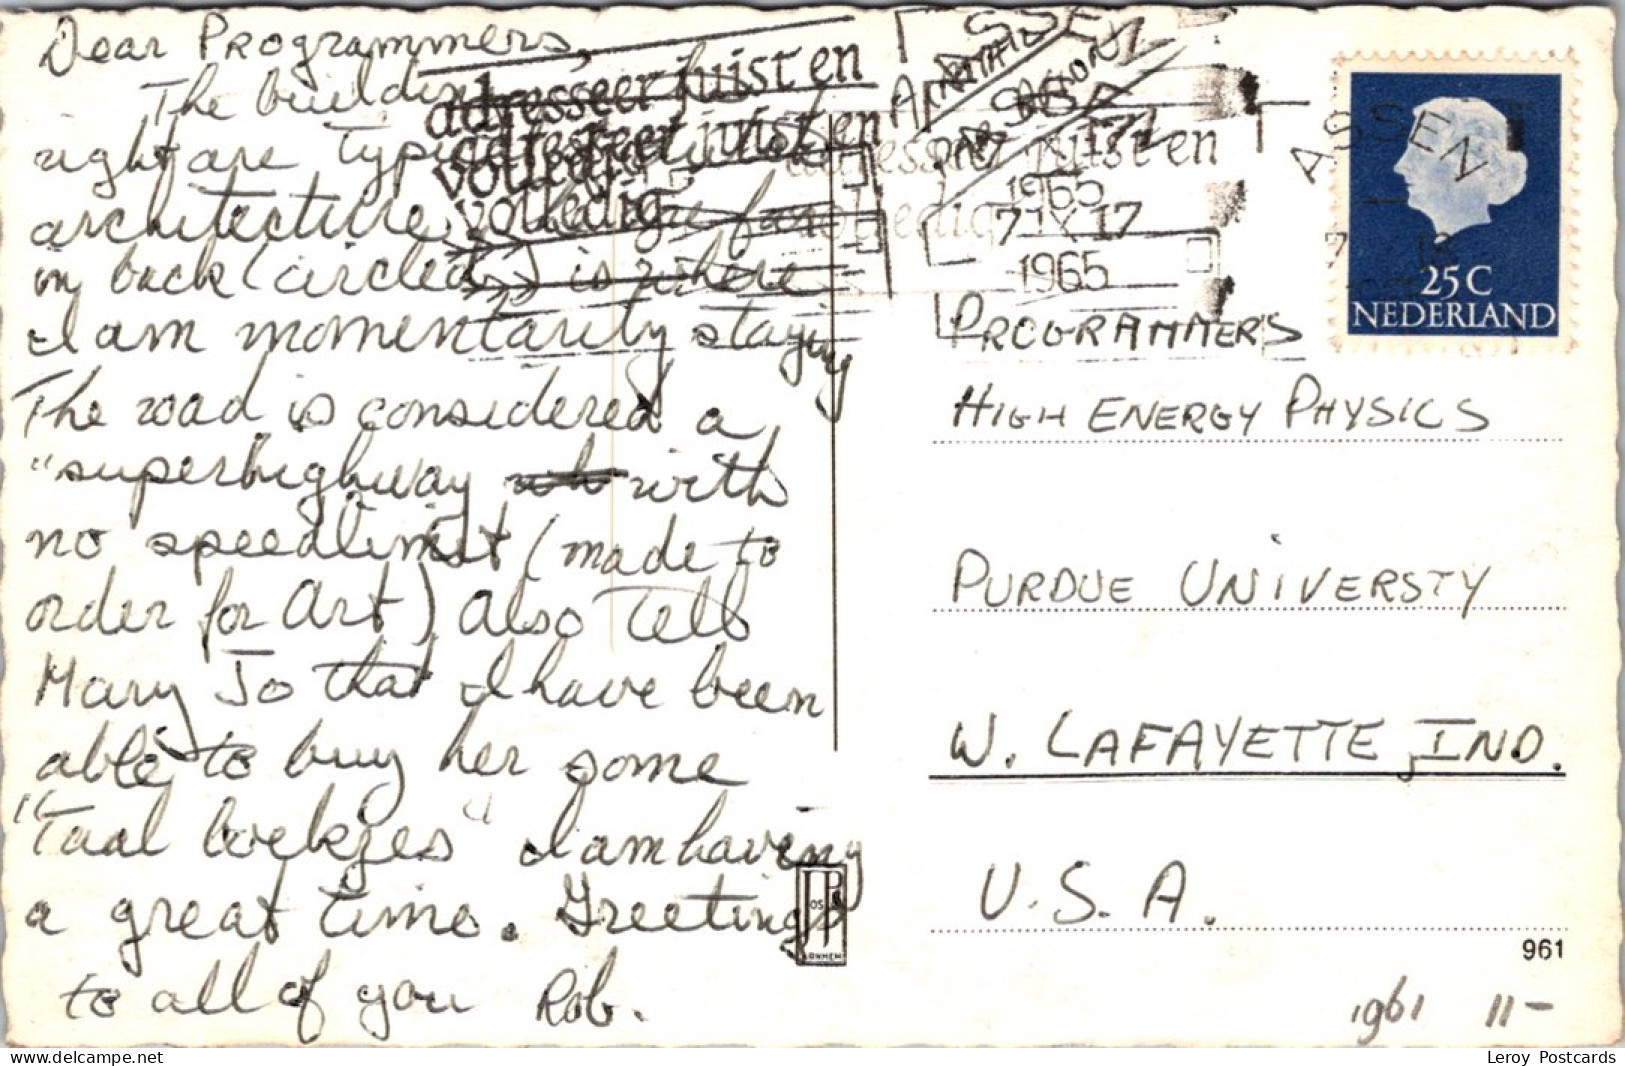 Dear Programmers,
The buildings
right are typic
architecture
in back (circled) is where
I am momentarily staying
The road is considered a
"superhighway with
no speedlimit (made to
order for Art) Also Tell
Mary Jo that I have been
able to buy her some
"Taal boekjes" I am having
a great time. Greetings
to all of you Rob.
adresseer juist en
adresseer juist en
volledig
volledig
adresseer juist en
volledig
ASSEN
1965
7 IX 17
1965
ASSEN
25 C
NEDERLAND
PROGRAMMERS
HIGH ENERGY PHYSICS
PURDUE UNIVERSTY
W. LAFAYETTE, IND.
U.S.A.
JosP
961
1961 11-
Leroy Postcards